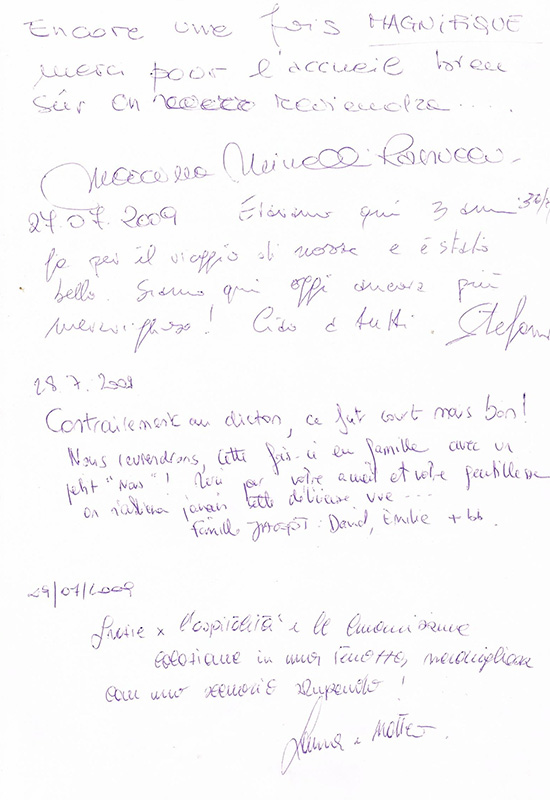 Encore une fois MAGNIFIQUE
merci pour l'accueil bien
sûr on reviendra.....
27.07.2009 Eravamo qui 3 anni
fa per il viaggio di nozze e è stato
bello. Siamo qui oggi ancora più
meraviglioso! Ciao a tutti. Stefano
28.7.2009
Contrairement au dicton, ce fut court mais bon!
Nous reviendrons, cette fois-ci en famille avec un
petit "nous"! Merci pour votre accueil et votre gentillesse
on n'oubliera jamais cette délicieuse vue...
Famille JACQOT: David, Emilie + bb.
29/07/2009
Grazie x l'ospitalità e le buonissime
colazione in una, meravigliosa
con uno scenario stupendo!
e Matteo.